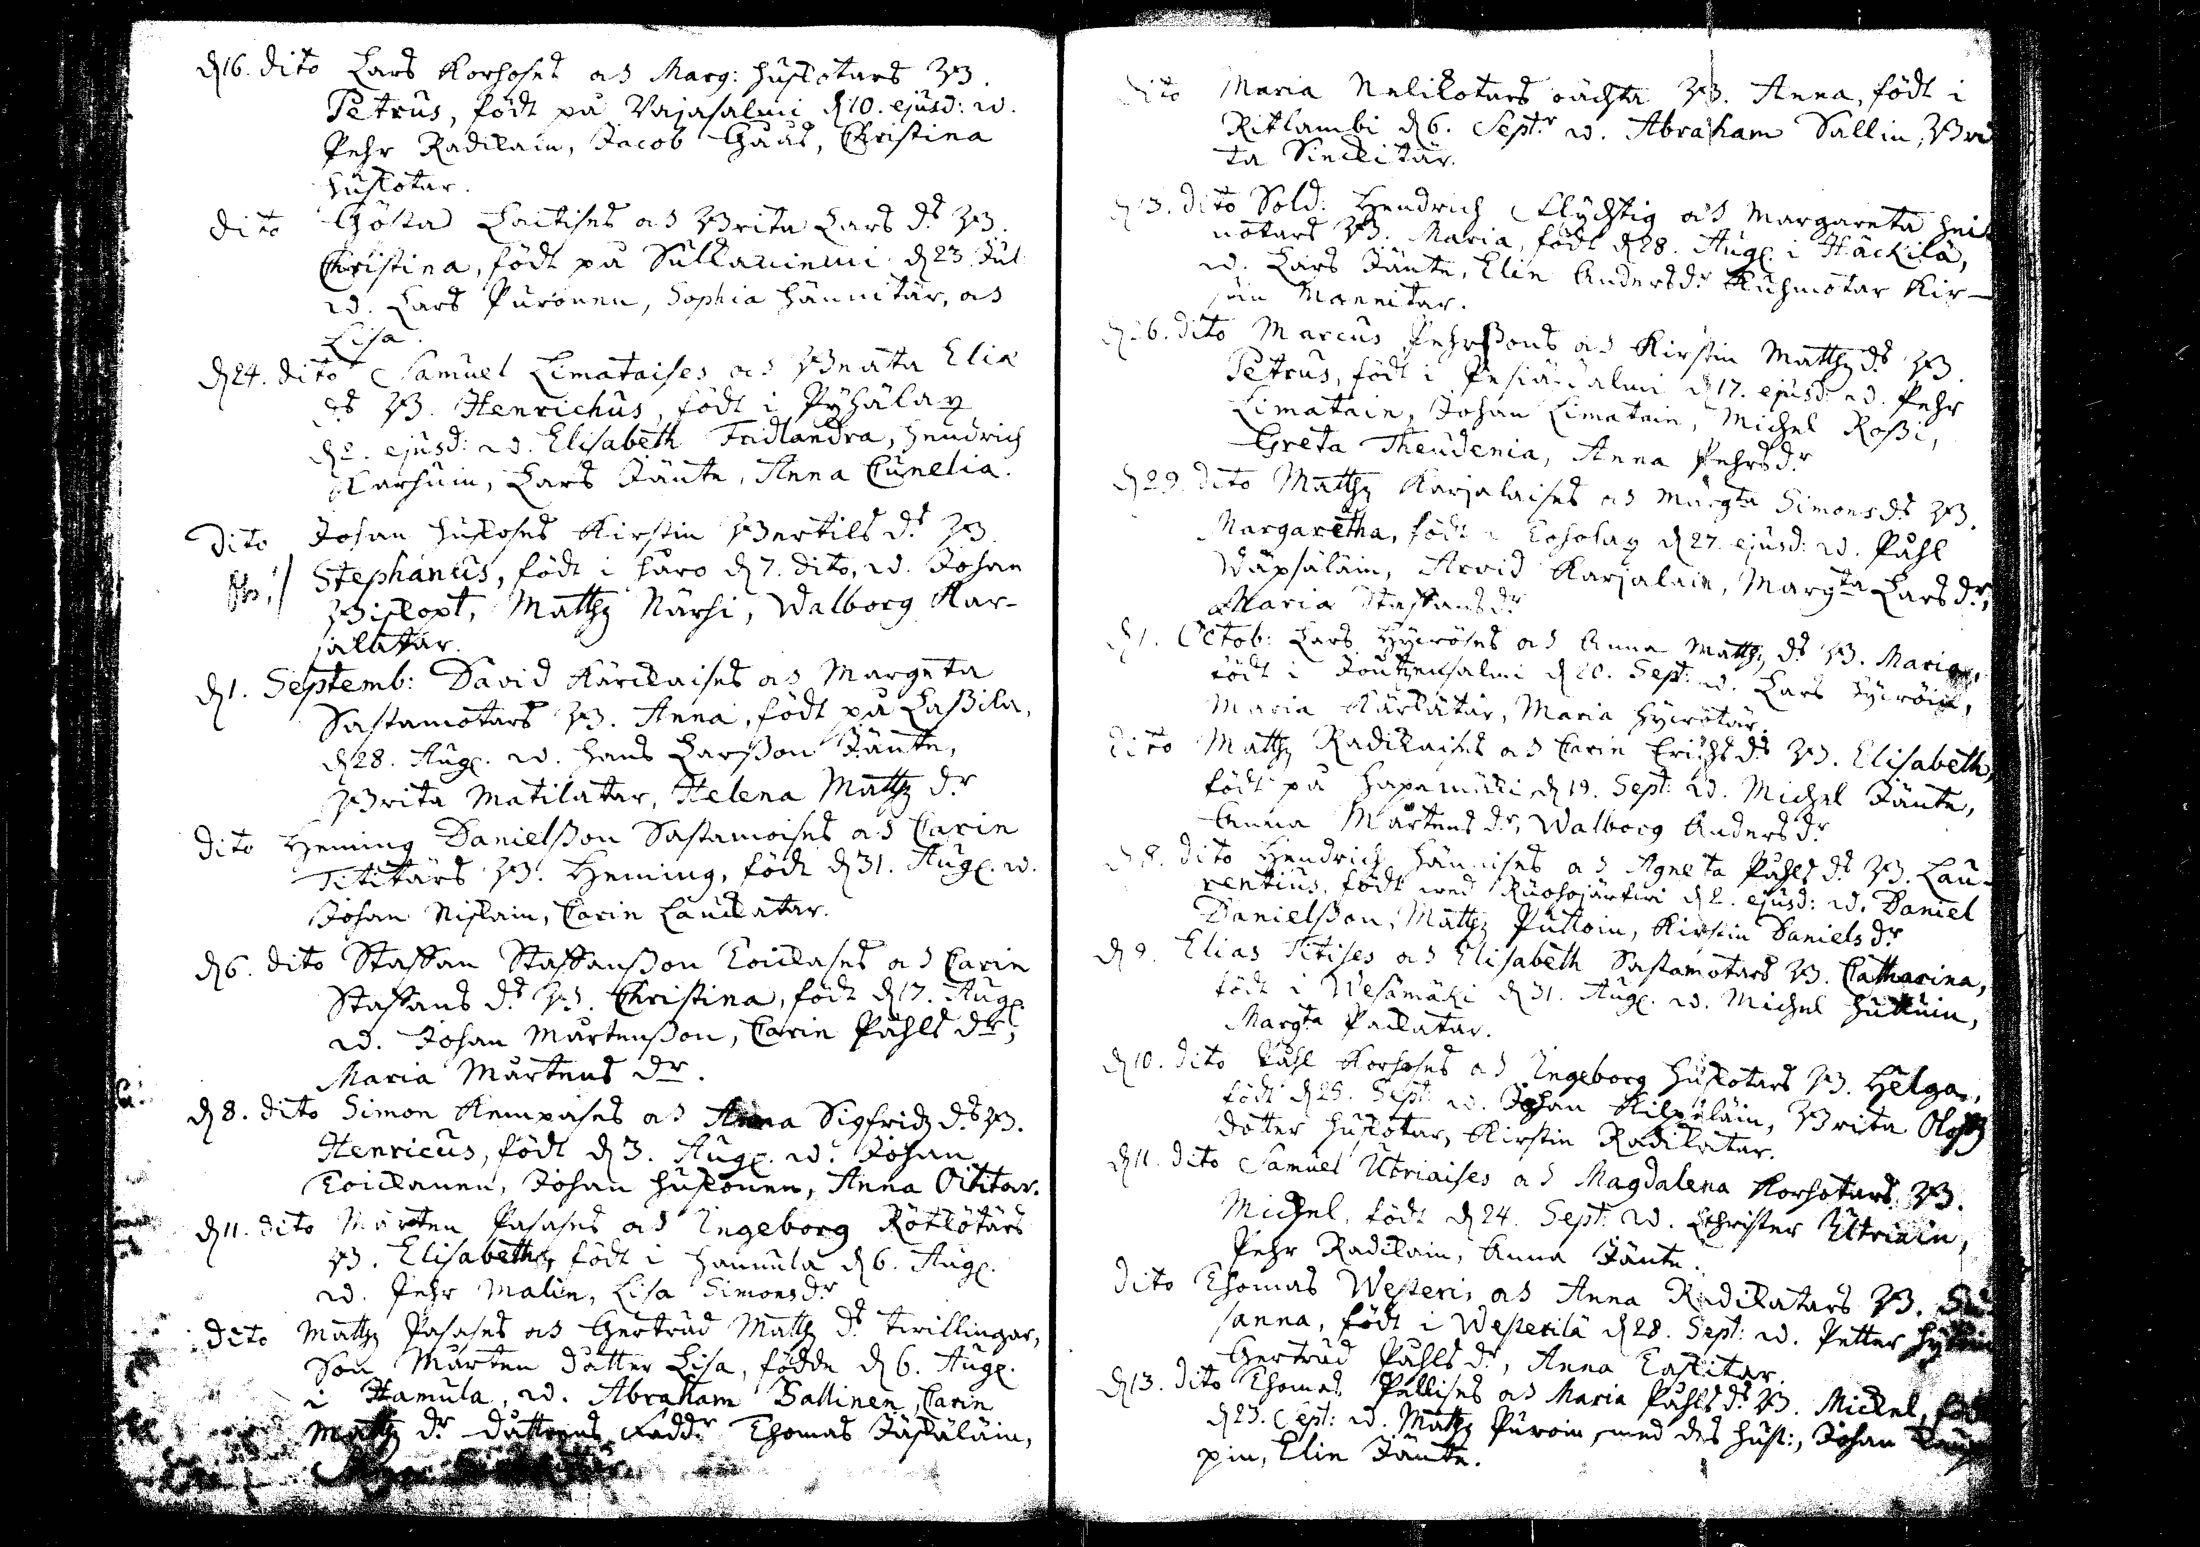 d 16. dito Lars Korhoses och Marg: Huskotars B.
Petrus, född på Vajasalmi d 10. ejusd: w.
Pehr Radikain, Jacob Gaus, Christina
Huskotar.
dito Gösta Laitises och Brita Lars d:s B.
Christina, född på Sulkaniemi d 23 Jul
w. Lars Puronen, Sophia Hännitär, och
Lisa.
d 24. dito Samuel Limataises och Beata Eliæ
d:s B. Henrichus, född i Pyhälax
d 2. ejusd: w. Elisabeth Fridlandra, Hendrich
Karhuin, Lars Jänte, Anna Cunelia.
dito Johan Huskoses Kirstin Bertils d:s B.
Stephanus, född i Haro d 7. dito, w. Johan
Biskopt, Matthz Närhi, Walborg Kar-
jalatar.
d 1. Septemb: David Kärckaises och Margeta
Sastamotars B. Anna, född på Laßila,
d 28. Aug. w. Hans Larßon Jänte,
Brita Matilatar, Helena Matthz dr
dito Heming Danielßon Sastamoises och Carin
Tititärs B. Heming, född d 31. Aug. w.
Johan Niskain, Carin Lauckatar.
d 6. dito Staffan Staffanßon Toickases och Carin
Staffans d:s B. Christina, född d 17. Aug.
w. Johan Mårtenßon, Carin Påhls dr,
Maria Mårtens dr.
d 8. dito Simon Kempases och Anna Sigfridz d:s B.
Henricus, född d 3. Aug. w. Johan
Toickanen, Johan Huskonen, Anna Oititar.
d 11. dito Mårten Pasases och Ingeborg Rötkötärs
B. Elisabeth, född i Hamula d 6. Aug.
w. Pehr Malin, Lisa Simonsdr
dito Matthz Pasases och Gertrud Matthz d:s twillingar,
Son Mårten dotter Lisa, födde d 6. Aug.
i Hamula, w. Abraham Sallinen, Carin
Matthz dr dottrens Faddr Thomas Jäskäläin,
dito Maria Nalikotars oächta B. Anna, född i
Ritlambi d 6. Sept:r w. Abraham Sallin, Bri
ta Sinckitär.
13. dito Sold: Hendrich Flychtig och Margareta Hei
notars B. Maria, född d 28. Aug. i Häckilä,
w. Lars Jänte, Elin Andersdr Kuhmotar Kir-
stin Mannitar.
26. dito Marcus Pehrßons och Kirstin Matthz d:s B.
Petrus, född i Pesiäsalmi d 17. ejusd: w. Pehr
Limatain, Johan Limatain, Michel Roßi,
Greta Theudenia, Anna Pehrsdr
d 29. dito Matthz Karjalaises och Margta Simons d:s B.
Margaretha, född i Toholax d 27. ejusd: w. Påhl
Wäpsäläin, Arvid Karjalain, Margta Lars dr,
Maria Staffansdr
d 1. Octob: Lars Hyvröses och Anna Matthz d:s B. Maria,
född i Joutzensalmi d 20. Sept: w. Lars Hyvröin,
Maria Kärkätär, Maria Hyvrötär.
dito Matthz Radikaises och Carin Erichs d:s B. Elisabeth,
född på Hapamäki d 19. Sept: w. Michel Jänte,
Anna Mårtens dr, Walborg Anders dr
d 8. dito Hendrich Hännises och Agneta Påhls d:s B. Lau-
rentius, född wed Ruohojärfwi d 2. ejusd: w. Daniel
Danielßon, Matthz Puttoin, Kirstin Daniels dr
d 9. Elias Titises och Elisabeth Sastamotars B. Catharina,
född i Wesämäki d 31. Aug. w. Michel Huttuin,
Margta Packatar.
d 10. dito Påhl Korhoses och Ingeborg Huskotars B. Helga,
född d 25. Sept: w. Johan Kilpäläin, Brita Olofz
dotter Huskotar, Kirstin Radikatar.
d 11. dito Samuel Utriaises och Magdalena Korhotars B.
Michel, född d 24. Sept: w. Christer Utriain,
Pehr Radikain, Anna Jänte.
dito Thomas Westeris och Anna Radikatars B. Su
sanna, född i Westerilä d 28. Sept: w. Petter
Gertrud Påhls dr, Anna Laskitar.
d 13. dito Thomas Pellises och Maria Påhls d:s B. Mickel,
d 23. Sept: w. Matthz Puroin, med des Hust:, Johan
pin, Elin Jänte.